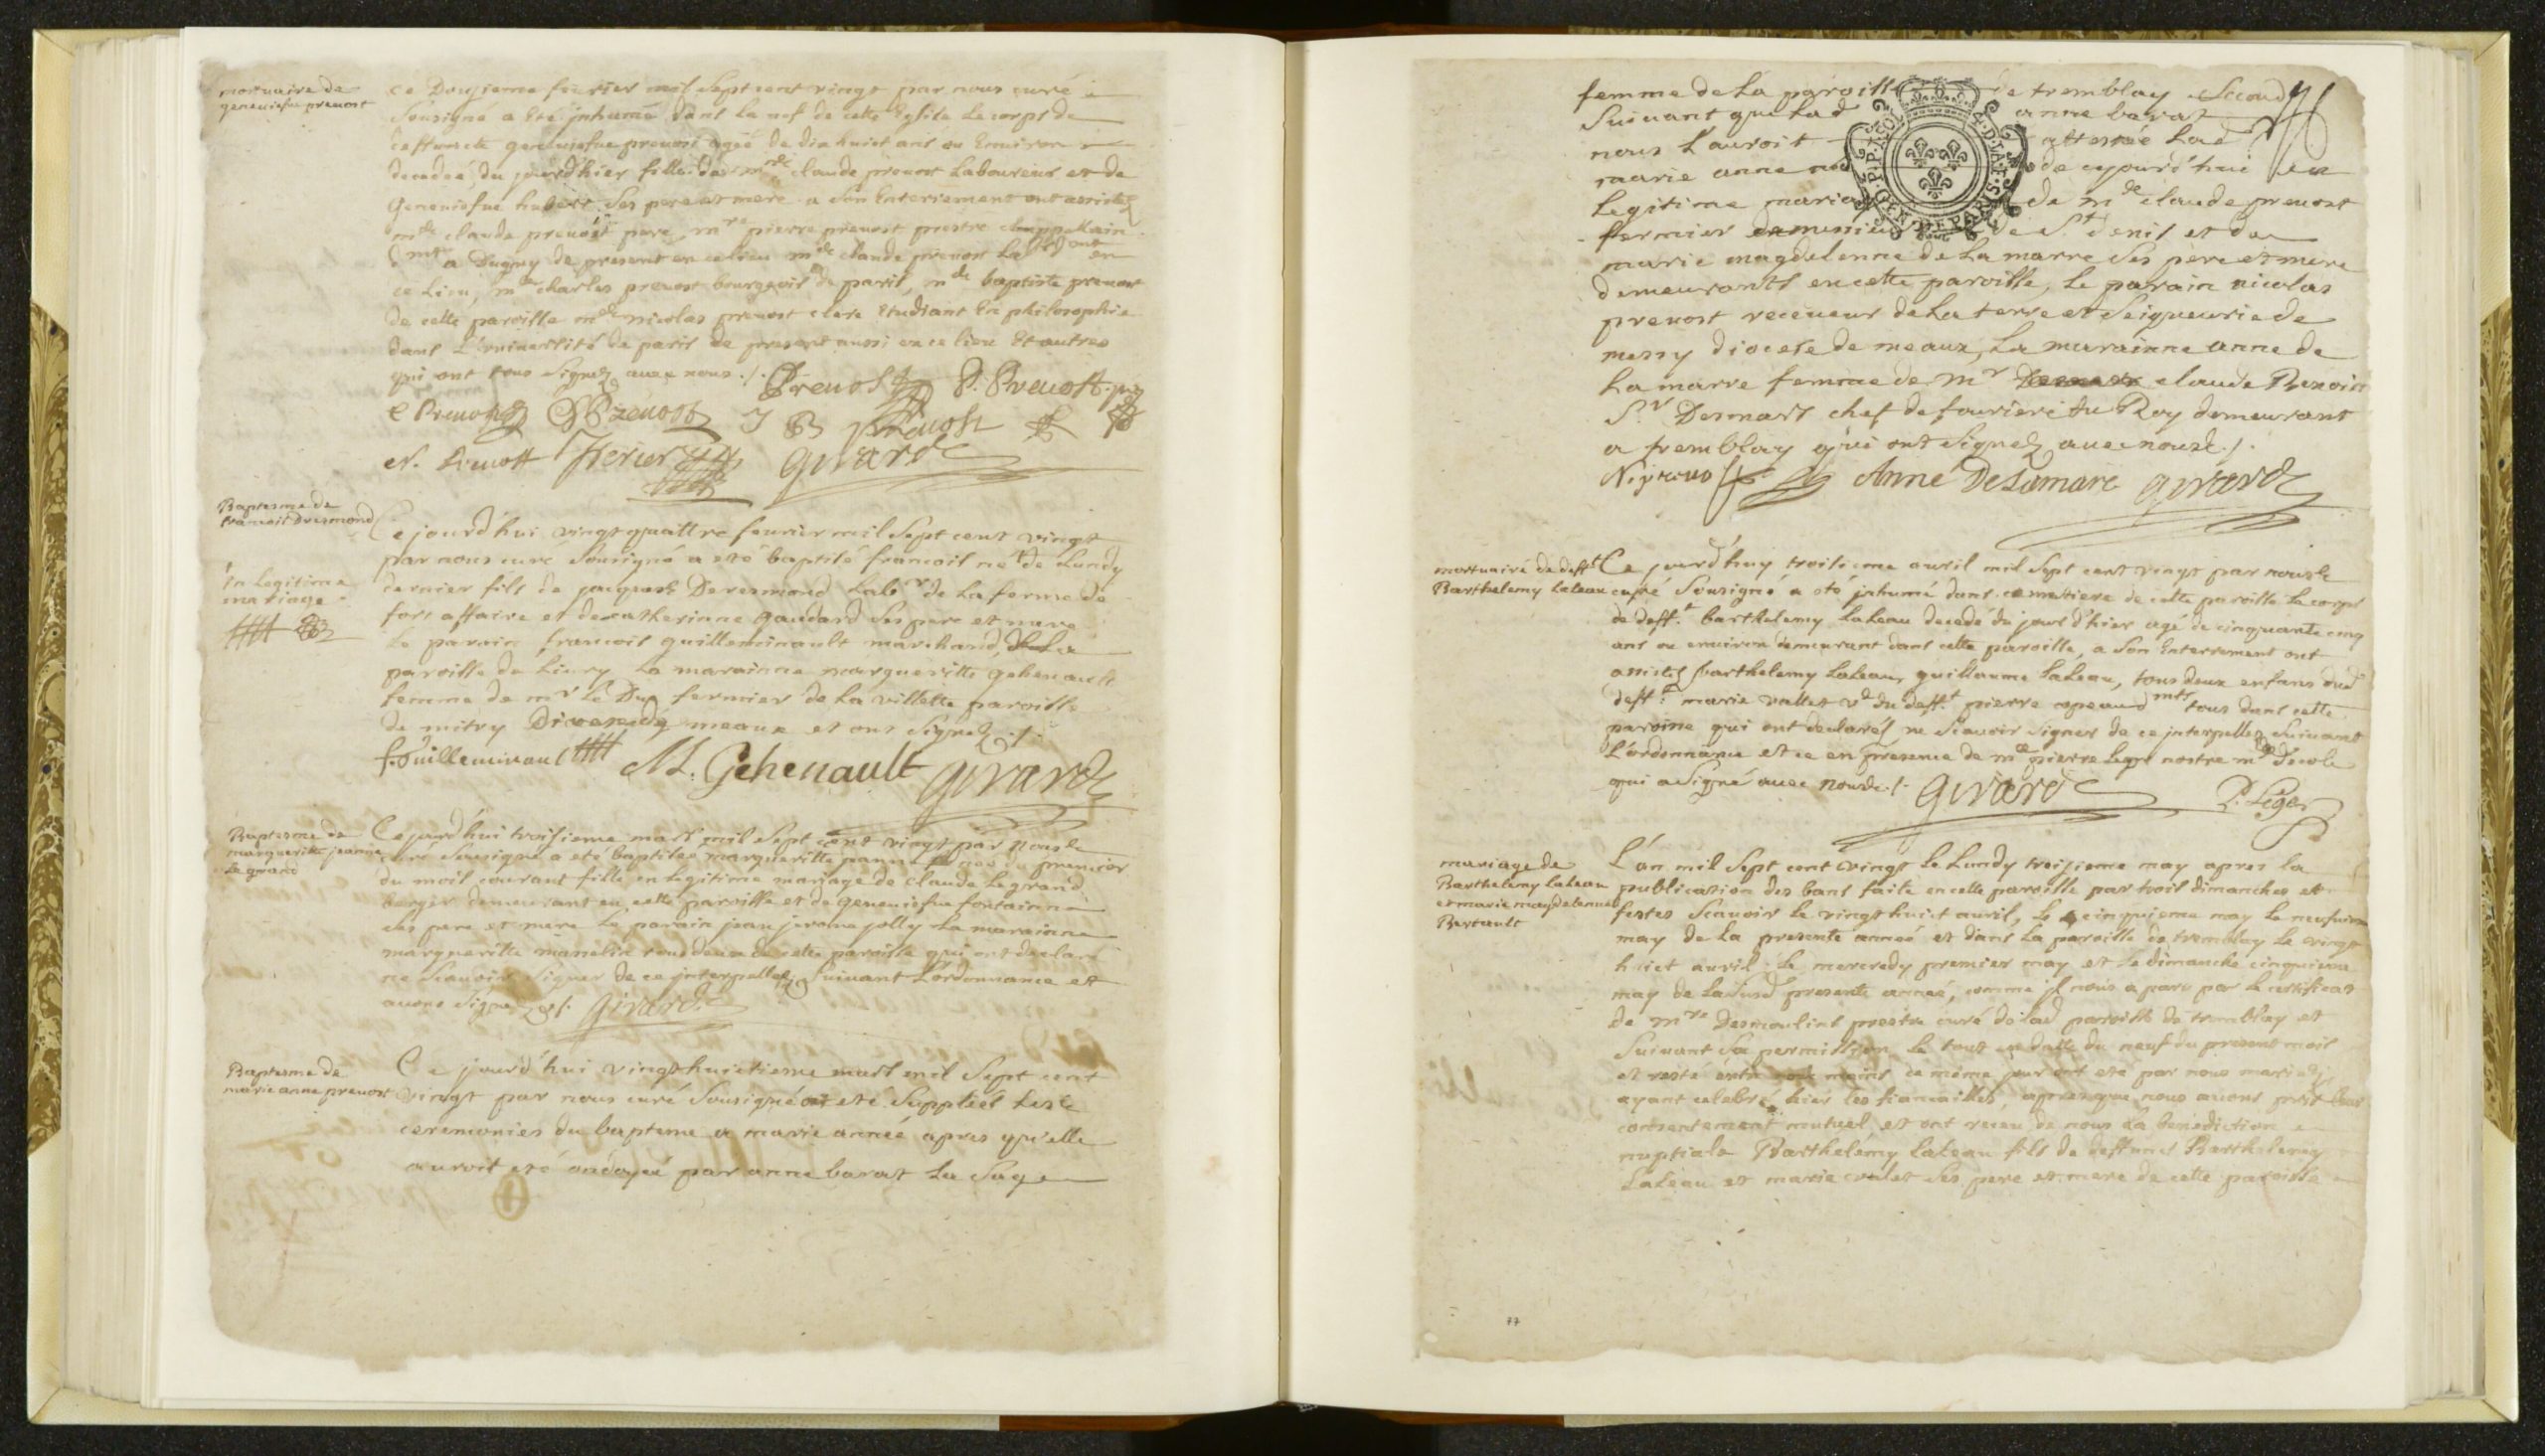 mortuaire de
geneuiefue preuost
ce Douzieme feurier mil Sept cent vingt par nous curé
Sousigné a Eté jnhumé dans la nef de cette Eglise Le corps de
deffuncte geneuiefue preuost agée de dix huict ans ou Enuiron
decedée du jourd'hier fille de mre claude preuost Laboureur et de
Geneuiefue hubert Ses pere et mere a Son Enterrement ont assistez
mde claude preuost pere, mre pierre preuost prestre chappelain
a Dugny de present en ce lieu mde claude preuost Labr dmt en
ce Lieu, mde charles preuost bourgeois de paris, mde baptiste preuost
de cette paroisse mde nicolas preuost clerc Etudiant En philosophie
dans L'vniuersité de paris de present aussi en ce lieu Et autres
qui ont tous Signez auec nous ./. Preuost P. Preuost
C Preuost Preuost J B Preuost
N. Preuost Girard
Baptesme de
francois Deresmond
Ce jourd'hui vingt quattre feurier mil Sept cent vingt
par nous curé Sousigné a eté baptisé francois né de Lundy
En Legitime
mariage
dernier fils de jacques Deresmond Labr de La ferme de
fort affaire et de catherinne gaudard Ses pere et mere
Le parain francois guilleminault marchand de La
paroisse de Liury La marainne margueritte gehenault
femme de mr Le Duq fermier de La villette paroisse
de mitry Diocese de meaux et ont Signez ./.
f. Guilleminault M. Gehenault Girard
Baptesme de
margueritte jeanne
Legrand
Ce jourd'hui troisieme mars mil Sept cent vingt par nous
curé Sousigné a eté baptisée margueritte jeanne née du premier
du mois courant fille en Legitime mariage de claude Legrand
berger demeurant en cette paroisse et de geneuiefue fontainne
Ses pere et mere Le parain jean jerome jolly La marainne
margueritte manelin tous deux de cette paroisse qui ont declaré
ne Scauoir Signer de ce jnterpellez Suiuant L'ordonnance et
auons Signé ./. Girard
Baptesme de
marie anne preuost
Ce jourd'hui vingt huictieme mars mil Sept cent
vingt par nous curé Sousigné ont eté Suppliées Les
ceremonies du bapteme a marie anne apres qu'elle
auroit eté ondoyée par anne barat La Sage
femme de La paroisse de tremblay
Suiuant que Lad anne barat
nous L'auroit attestée Lad
marie anne née de ce jourd'hui en
Legitime mariage de mde claude preuost
fermier de St denis et de
marie magdelenne de La marre Ses pere et mere
demeurants en cette paroisse, Le parain nicolas
preuost receueur de La terre et Seigneurie de
messy diocese de meaux, La marainne anne de
La marre femme de Mr claude Benoist
Sr Desmars chef de fourriere du Roy demeurant
a tremblay qui ont Signez auec nous ./.
N preuost Anne De Lamare Girard
G. P. P. 1 SOL 4. D. LA. F. GEN. DE PARIS
mortuaire de defft
Barthelemy Laleau
Ce jourd'huy troisieme auril mil Sept cent vingt par nous
curé Sousigné a eté jnhumé dans cemetiere de cette paroisse Le corps
de defft barthelemy Laleau decedé du jour d'hier agé de cinquante cinq
ans ou enuiron demeurant dans cette paroisse, a Son Enterrement ont
assistez barthelemy Laleau, guillaume Laleau, tous deux enfans dud
defft marie vallet ve du defft pierre mts tous dans cette
paroisse qui ont declarés ne Scauoir Signer de ce jnterpellez Suiuant
L'ordonnance et ce en presence de me pierre Leger nostre me d'ecole
qui a Signé auec nous ./. Girard P. Leger
mariage de
Barthelemy Laleau
et marie magdelenne
Bertault
L'an mil Sept cent vingt Le Lundy treizieme may apres la
publication des bans faite en cette paroisse par trois dimanches et
festes Scauoir Le vingt huict auril, Le cinquieme may Le neufuieme
may de La presente année et dans La paroisse de tremblay Le vingt
huict auril Le mercredy premier may et Le dimanche cinquieme
may de Ladusd presente année, comme jl nous a paru par Le certificat
de mre Desmoulins prestre curé de Lad paroisse de tremblay et
Suiuant Sa permission Le tout en datte du neuf du present mois
et resté entre nos mains ce même jour ont eté par nous mariés
ayant celebré hier Les fiancailles, apres que nous auons pris Leur
consentement mutuel et ont receu de nous La benediction
nuptiale Barthelemy Laleau fils de deffunct Barthelemy
Laleau et marie valet Ses pere et mere de cette paroisse
77